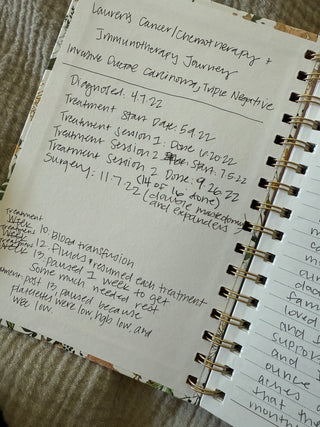 Lauren's Cancer/Chemotherapy +
Immunotherapy Journey
Invasive Ductal Carcinoma, Triple Negative
Diagnosed: 4.7.22
Treatment Start Date: 5.9.22
Treatment Session 1: Done 6.20.22
Treatment Session 2 Start: 7.5.22
Treatment Session 2 Done: 9.26.22
(14 of 16 done)
Surgery: 11.7.22 (double mastectomy
and expanders)
Treatment
Week 10: Blood transfusion
Treatment
Week 12: fluids resumed each treatment
Week 13: paused 1 week to get
some much needed rest
post 13, paused because
platelets were low, hgb low, and
low.
fam
loved
and f
suppo
and
ounce
aches a
that th
month